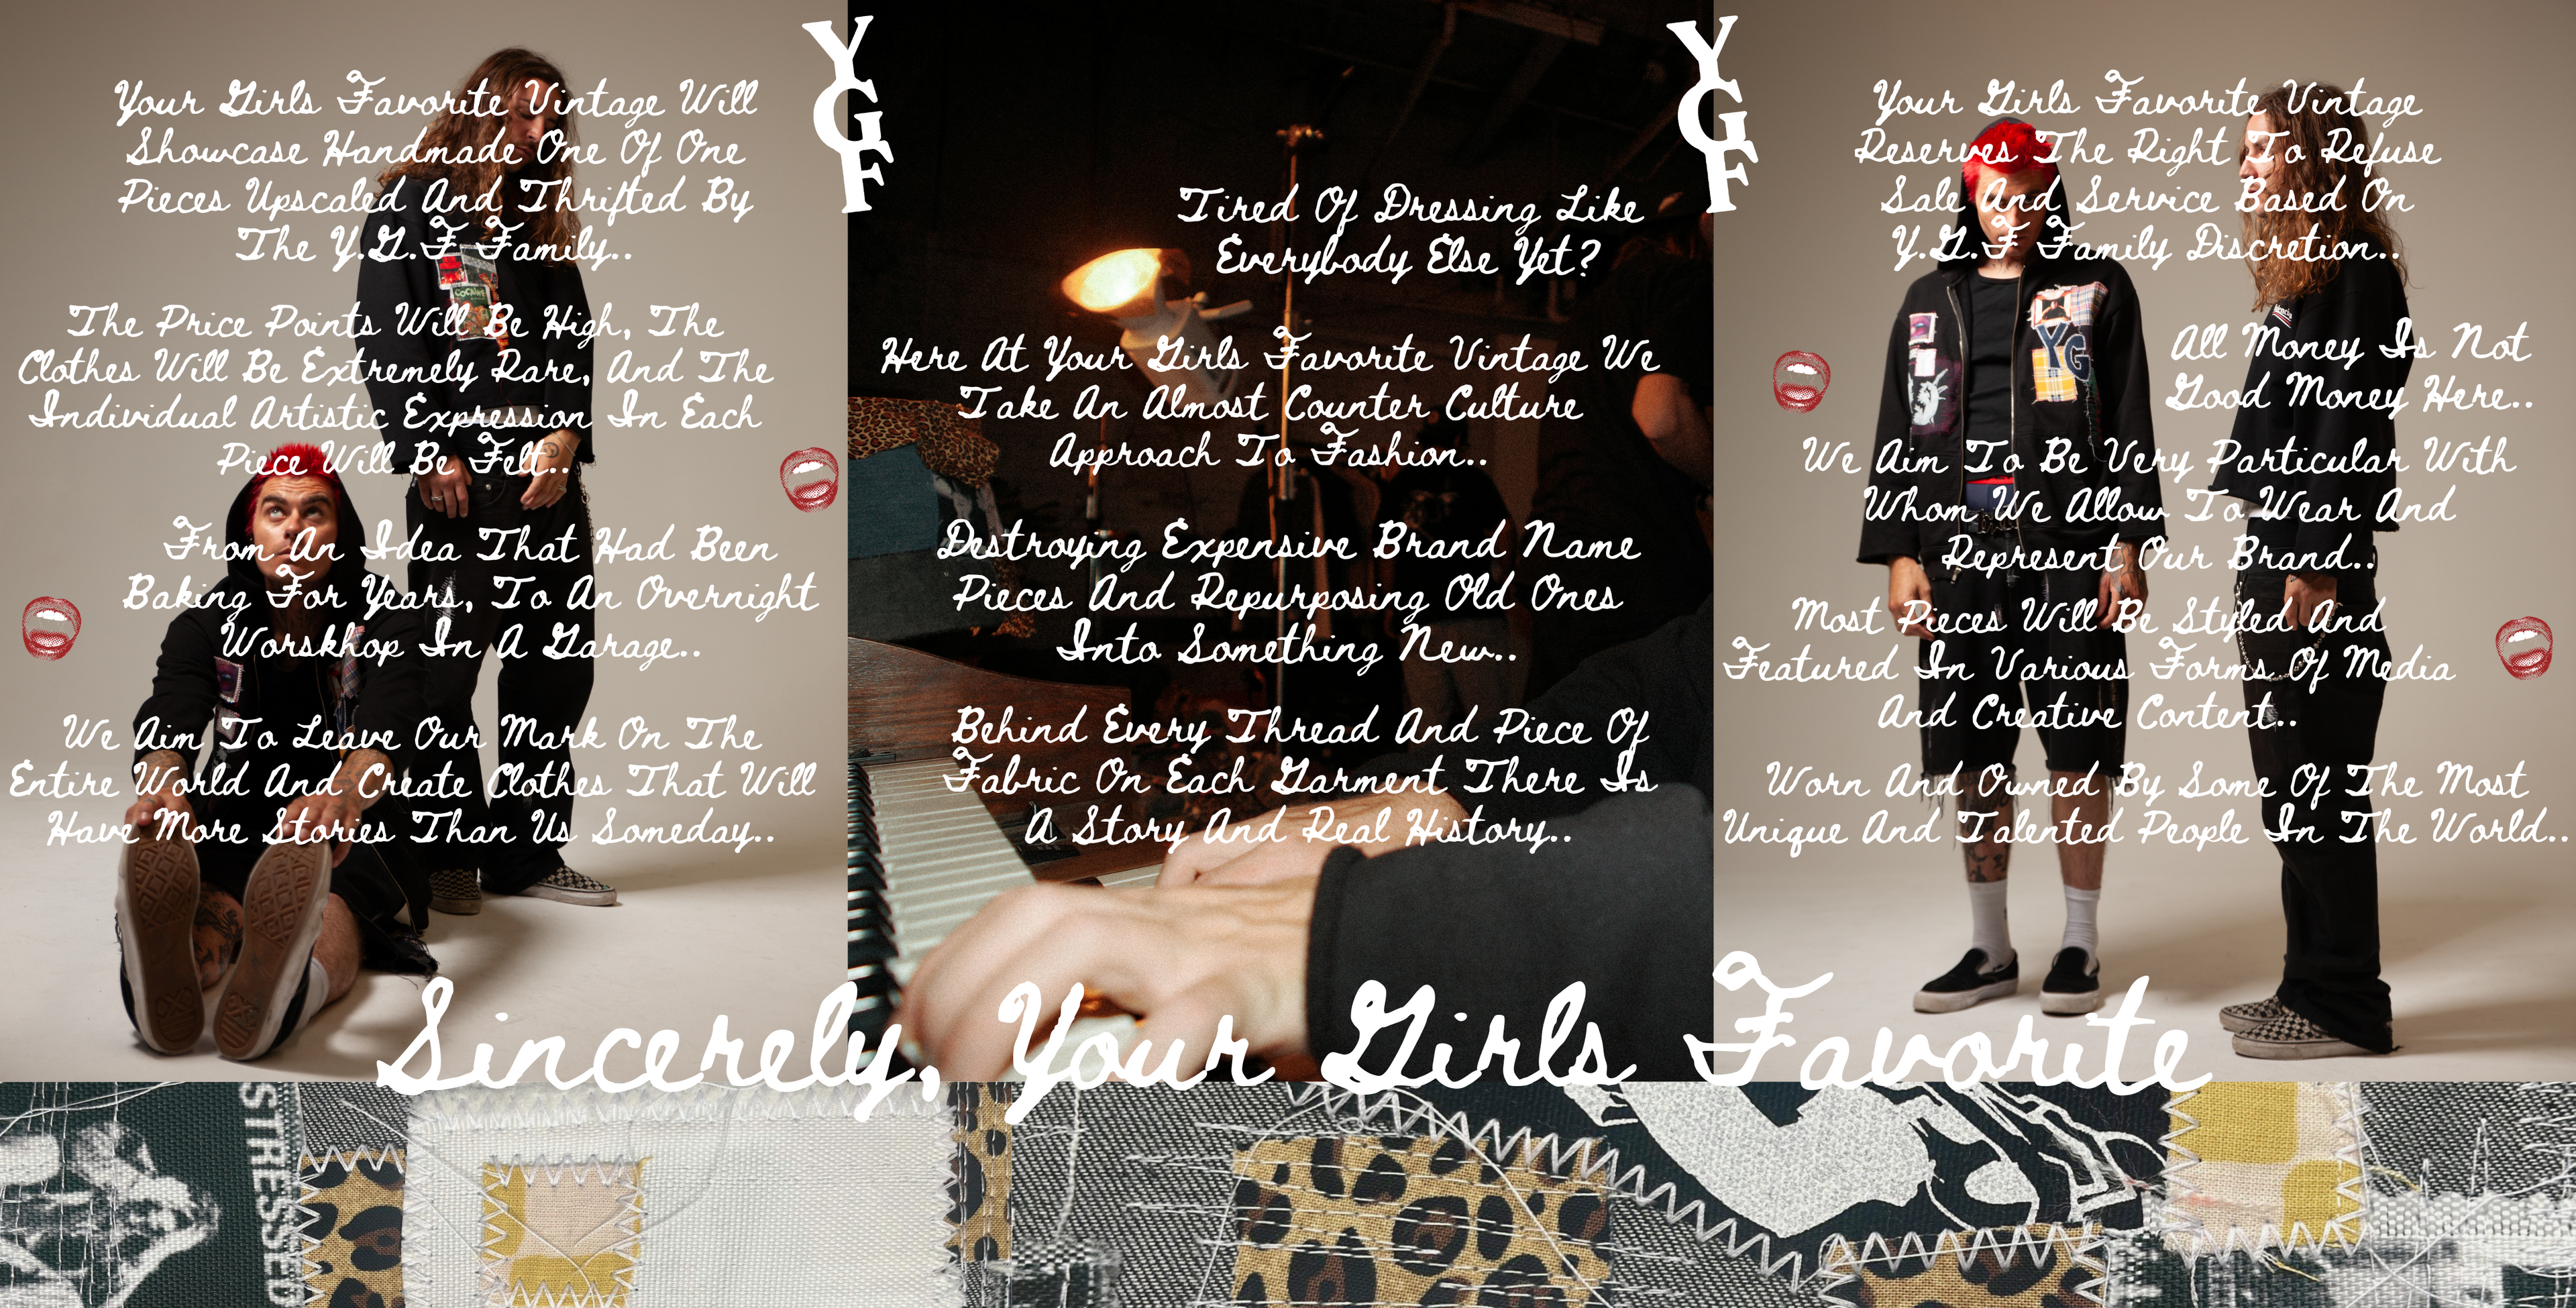 Your Girls Favorite Vintage Will
Showcase Handmade One Of One
Pieces Upscaled And Thrifted By
The Y.G.F Family..
The Price Points Will Be High, The
Clothes Will Be Extremely Rare, And The
Individual Artistic Expression In Each
Piece Will Be Felt..
From An Idea That Had Been
Baking For Years, To An Overnight
Worskhop In A Garage..
We Aim To Leave Our Mark On The
Entire World And Create Clothes That Will
Have More Stories Than Us Someday..
YGF
Tired Of Dressing Like
Everybody Else Yet?
Here At Your Girls Favorite Vintage We
Take An Almost Counter Culture
Approach To Fashion..
Destroying Expensive Brand Name
Pieces And Repurposing Old Ones
Into Something New..
Behind Every Thread And Piece Of
Fabric On Each Garment There Is
A Story And Real History..
YGF
Your Girls Favorite Vintage
Reserves The Right To Refuse
Sale And Service Based On
Y.G.F Family Discretion..
All Money Is Not
Good Money Here..
We Aim To Be Very Particular With
Whom We Allow To Wear And
Represent Our Brand..
Most Pieces Will Be Styled And
Featured In Various Forms Of Media
And Creative Content..
Worn And Owned By Some Of The Most
Unique And Talented People In The World..
COCAINE
YG
Sincerely, Your Girls Favorite
STRESSED